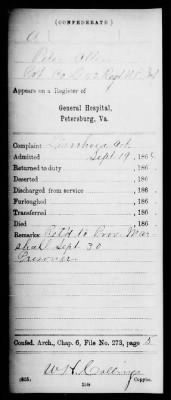 (CONFEDERATE)
A
Peter Allen
Appears on a Register of
General Hospital,
Petersburg, Va.
Complaint Diarrhoea Act.
Admitted Sept 19, 186
Returned to duty , 186
Deserted , 186
Discharged from service , 186
Furloughed , 186
Transferred , 186
Died , 186
Remarks: Retd to Prov. Mar
shall Sept 30
Prisoner
Confed. Arch., Chap. 6, File No. 273, page 5
W. H. Collings
Copyist.